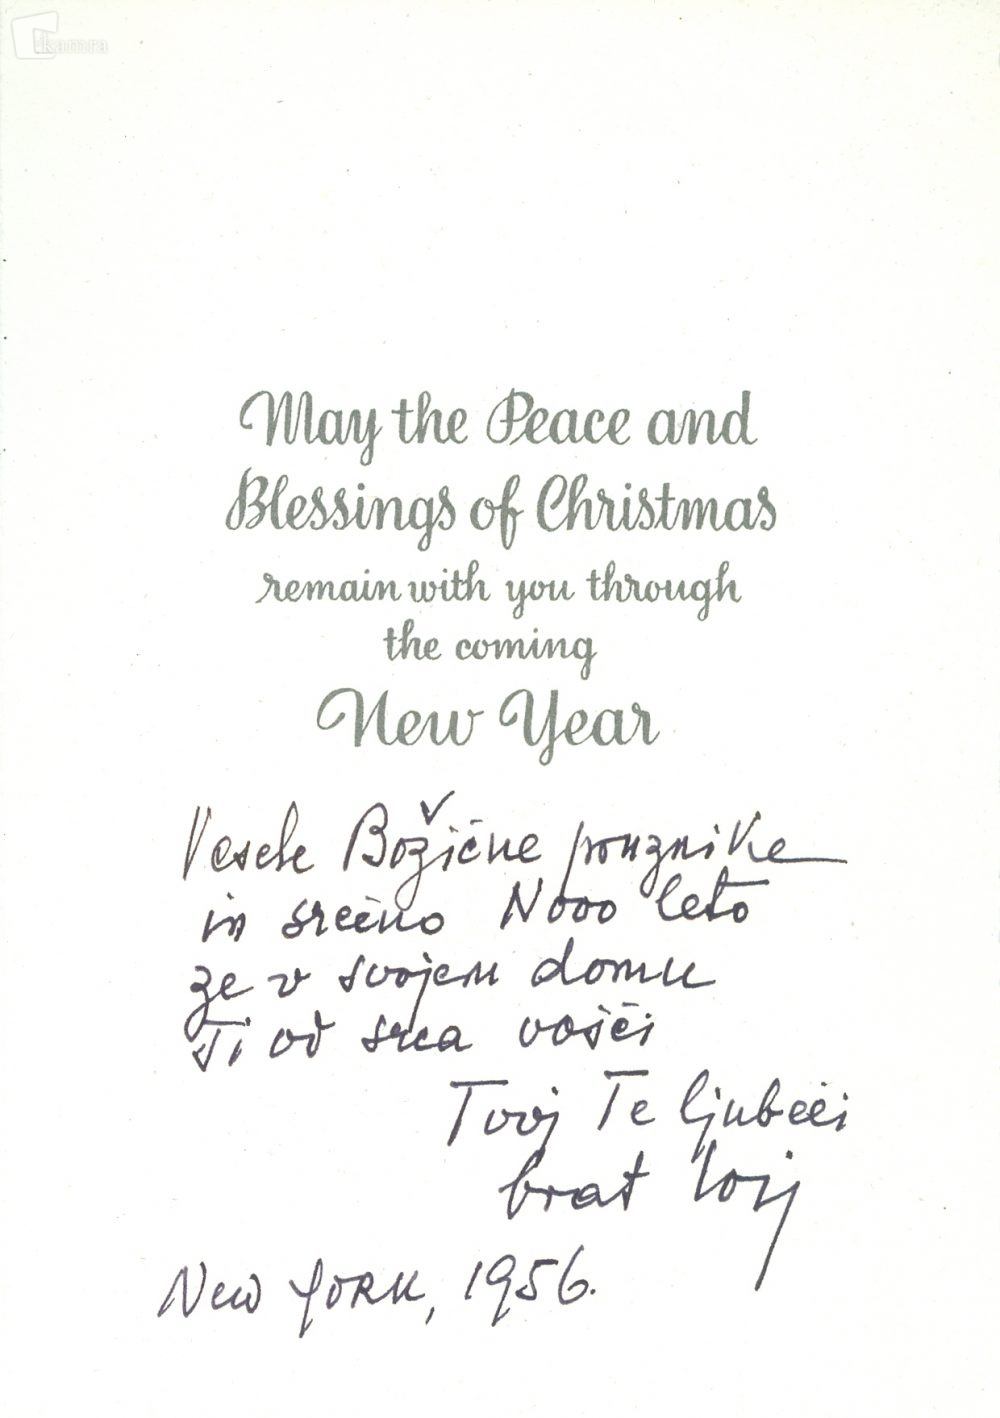 kamra
May the Peace and
Blessings of Christmas
remain with you through
the coming
New Year
Vesele Božične praznike
in srečno Novo leto
že v svojem domu
Ti od srca vošči
Tvoj Te ljubeči
brat
New York, 1956.